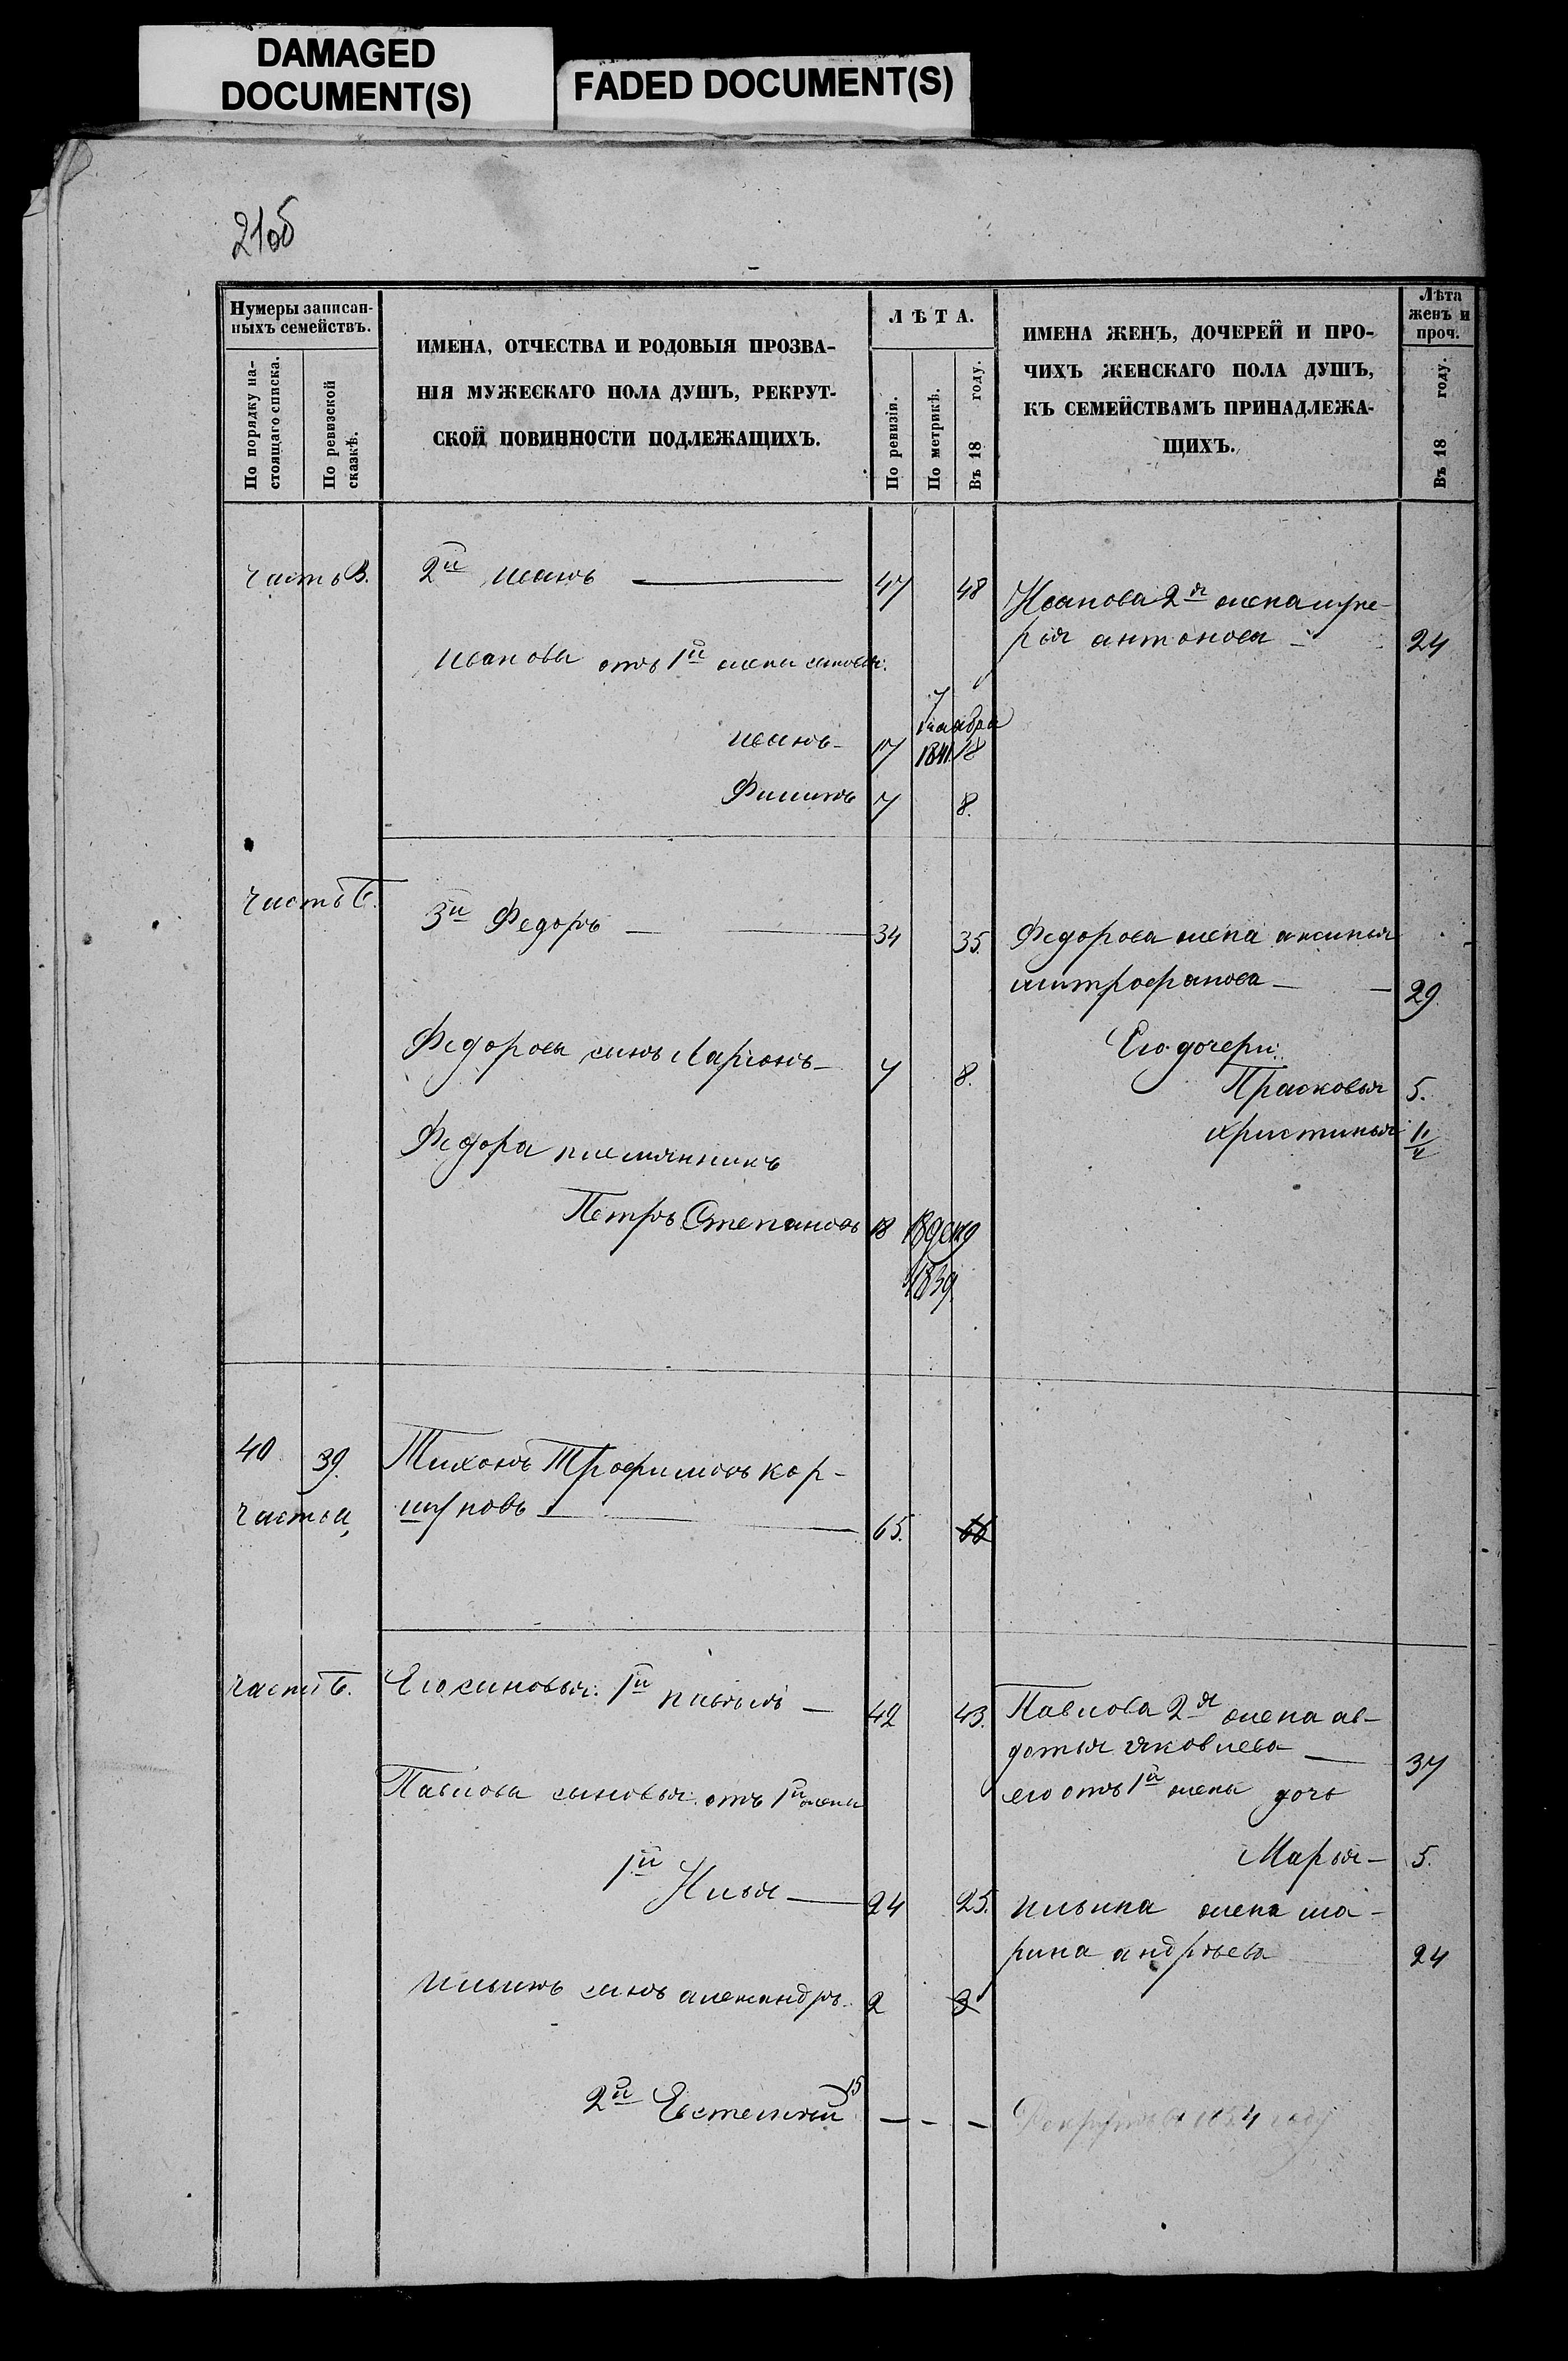 DAMAGED
DOCUMENT(S)
FADED DOCUMENT(S)
21об
Нумеры записан-
ныхъ семействъ.
По порядку на-
стоящаго списка.
По ревизской
сказкѣ.
ИМЕНА, ОТЧЕСТВА И РОДОВЫЯ ПРОЗВА-
НІЯ МУЖЕСКАГО ПОЛА ДУШЪ, РЕКРУТ-
СКОЙ ПОВИННОСТИ ПОДЛЕЖАЩИХЪ.
ЛѢТА.
По ревизіи.
По метрикѣ.
Въ 18 году.
ИМЕНА ЖЕНЪ, ДОЧЕРЕЙ И ПРО-
ЧИХЪ ЖЕНСКАГО ПОЛА ДУШЪ,
КЪ СЕМЕЙСТВАМЪ ПРИНАДЛЕЖА-
ЩИХЪ.
Лѣта
женъ и
проч.
Въ 18 году.
часть В. 2й иванъ — 47 48
Иванова 2я жена
антонова — 24
иванова отъ 1й жены сыновья:
7
иванъ — 17 1841 18
Филипъ 7 8.
часть б. 3й Федоръ — 34 35.
Федорова жена аксинья
митрофанова — 29.
Федорова сынъ Ларіонъ — 7 8.
Его дочери:
Прасковья 5.
христинья
Федора племянникъ
Петръ Степановъ 18
1839
40 39. Тихонъ Трофимовъ кор-
часть а, шуновъ — 65. 66
часть б. Его сыновья: 1й павелъ — 42 43.
Павлова 2я жена ав-
дотья яковлева — 37
Павлова сыновья отъ 1й жены
его отъ 1й жены дочь
Марья — 5.
1й Илья — 24 25.
ильина жена ма-
рина андрѣева 24
ильинъ сынъ александръ. 2 3
2й Евстегней 15 — - —
Рекрутъ в 1854 году